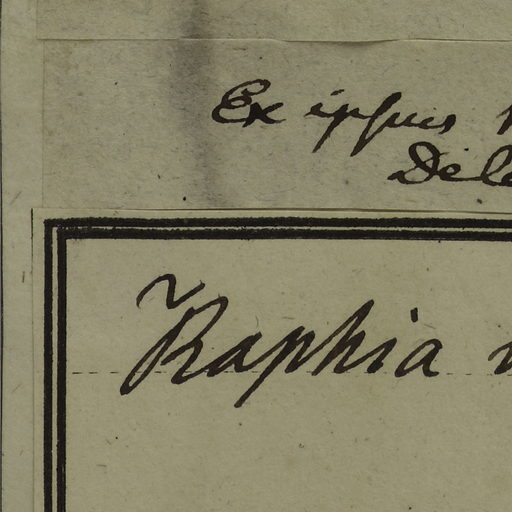 Ex ipsius
Dele
Raphia